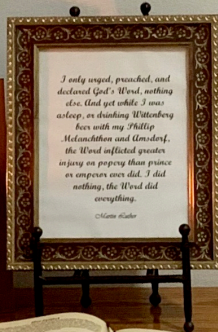 I only urged, preached, and
declared God's Word, nothing
else. And yet while I was
asleep, or drinking Wittenberg
beer with my Phillip
Melanchthon and Amsdorf,
the Word inflicted greater
injury on popery than prince
or emperor ever did. I did
nothing, the Word did
everything.
Martin Luther